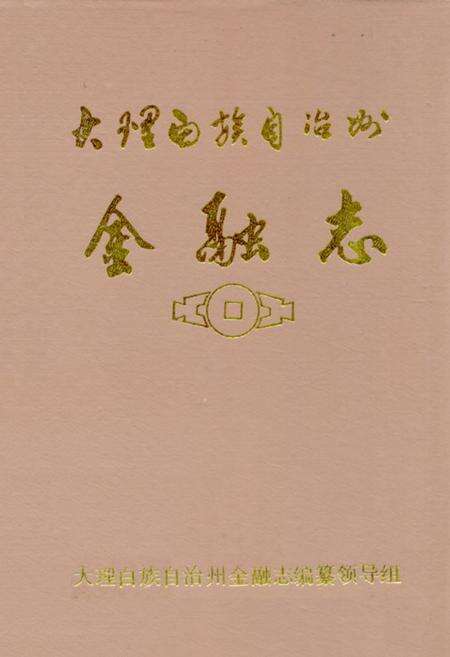 大理白族自治州
金融志
大理白族自治州金融志编纂领导组